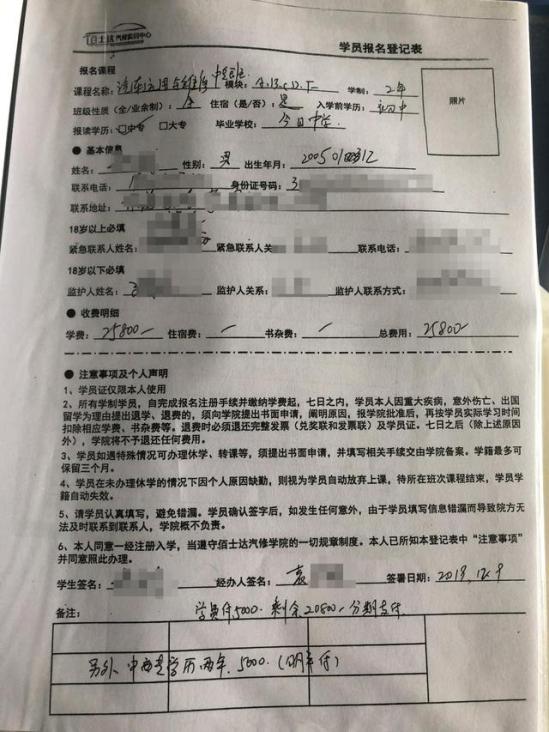 佰士达汽修实训中心
学员报名登记表
报名课程
课程名称：汽车运用与维修中专班 模块： 学制：2年
班级性质（全/业余制）：全 住宿（是/否）：是 入学前学历：初中
报读学历：□中专 □大专 毕业学校：今日中学
照片
● 基本信息
姓名： 性别：男 出生年月：
联系电话： 身份证号码：3
联系地址：
18岁以上必填
紧急联系人姓名： 紧急联系人关 联系电话：
18岁以下必填
监护人姓名： 监护人关系： 监护人联系方式：
● 收费明细
学费：25800 住宿费：/ 书杂费：/ 总费用：25800
● 注意事项及个人声明
1、学员证仅限本人使用
2、所有学制学员，自完成报名注册手续并缴纳学费起，七日之内，学员本人因重大疾病，意外伤亡、出国
留学为理由提出退学、退费的，须向学院提出书面申请，阐明原因，报学院批准后，再按学员实际学习时间
扣除相应学费、书杂费等。退费时必须退还完整发票（兑奖联和发票联）及学员证。七日之后（除上述原因
外），学院将不予退还任何费用。
3、学员如遇特殊情况可办理休学、转课等，须提出书面申请，并填写相关手续交由学院备案。学籍最多可
保留三个月。
4、学员在未办理休学的情况下因个人原因缺勤，则视为学员自动放弃上课，待所在班次课程结束，学员学
籍自动失效。
5、请学员认真填写，避免错漏。学员确认签字后，如发生任何意外，由于学员填写信息错漏而导致院方无
法及时联系到联系人，学院概不负责。
6、本人同意一经注册入学，当遵守佰士达汽修学院的一切规章制度。本人已所知本登记表中“注意事项”
并同意照此办理。
学生签名： 经办人签名：袁 签署日期：2019.12.9
备注： 学员付5000.剩余20800分期支付
另外、中西走学历.两年.5000.（明年付）